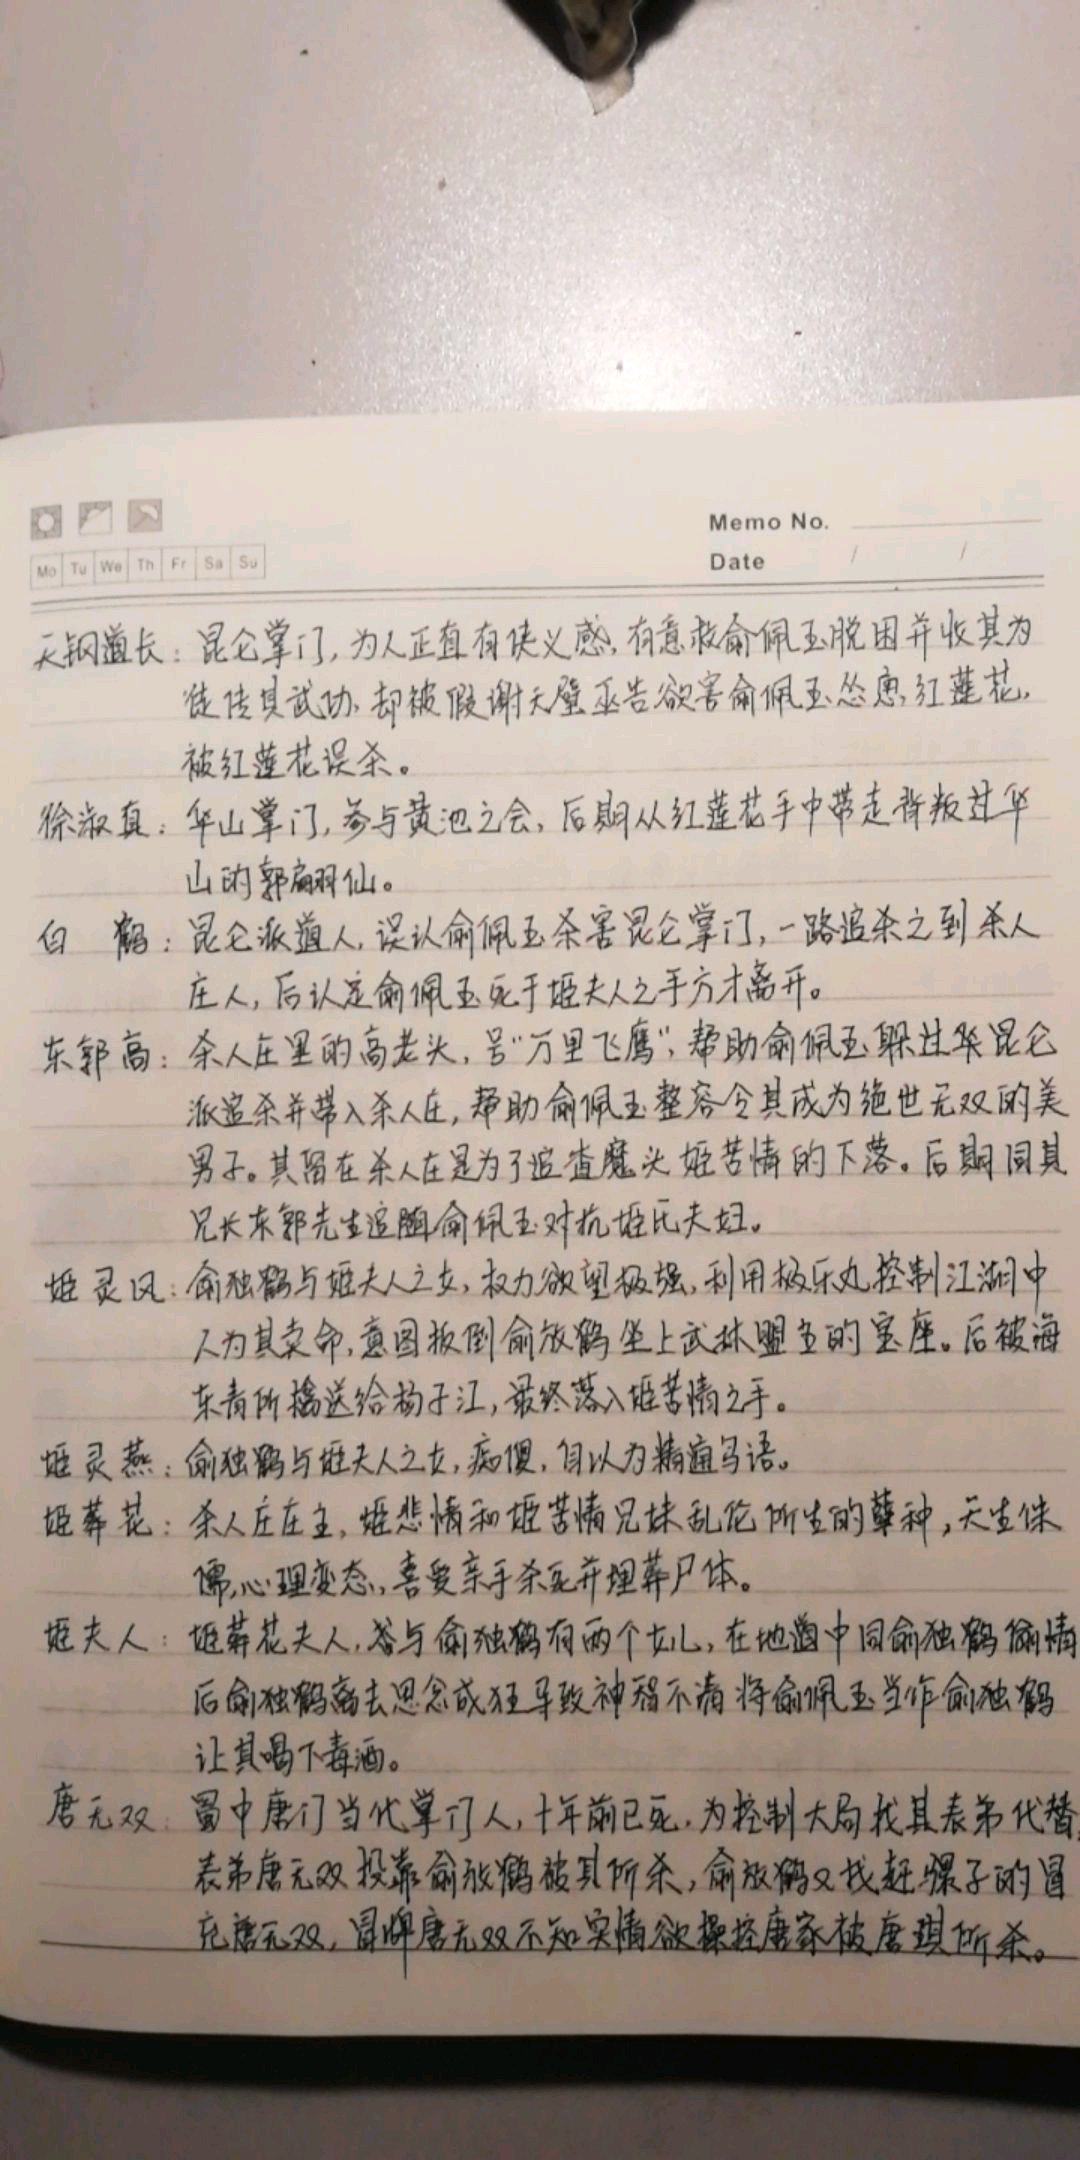 Memo No.
Mo Tu We Th Fr Sa Su
Date / /
天钢道长：昆仑掌门，为人正直有侠义感，有意救俞佩玉脱困并收其为
徒传其武功，却被假谢天璧巫告欲害俞佩玉怂恿，红莲花，
被红莲花误杀。
徐淑真：华山掌门，参与黄池之会，后期从红莲花手中带走背叛过华
山的郭翩仙。
白鹤：昆仑派道人，误认俞佩玉杀害昆仑掌门，一路追杀之到杀人
庄人，后认定俞佩玉死于姬夫人之手方才离开。
东郭高：杀人庄里的高老头，号“万里飞鹰”，帮助俞佩玉躲过华昆仑
派追杀并带入杀人庄，帮助俞佩玉整容令其成为绝世无双的美
男子。其留在杀人庄是为了追查魔头姬苦情的下落。后期同其
兄长东郭先生追随俞佩玉对抗姬氏夫妇。
姬灵风：俞独鹤与姬夫人之女，权力欲望极强，利用极乐丸控制江湖中
人为其卖命，意图扳倒俞放鹤坐上武林盟主的宝座。后被海
东青所擒送给杨子江，最终落入姬苦情之手。
姬灵燕：俞独鹤与姬夫人之女，痴傻，自以为精通鸟语。
姬葬花：杀人庄庄主，姬悲情和姬苦情兄妹乱伦所生的孽种，天生侏
儒，心理变态，喜爱亲手杀死并埋葬尸体。
姬夫人：姬葬花夫人，与俞独鹤有两个女儿，在地道中同俞独鹤偷情
后俞独鹤离去思念成狂导致神智不清将俞佩玉当作俞独鹤
让其喝下毒酒。
唐无双：蜀中唐门当代掌门人，十年前已死，为控制大局找其表弟代替，
表弟唐无双投靠俞放鹤被其所杀，俞放鹤又找赶骡子的冒
充唐无双，冒牌唐无双不知实情欲操控唐家被唐琪所杀。